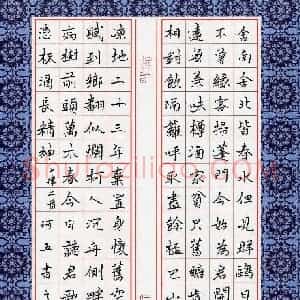 舍南舍北皆春水但見群鷗
不曾緣客掃蓬門今始為君
遠無兼味樽酒家貧只舊醅
相對飲隔籬呼取盡餘杯
涼地二十三年棄置身懷舊
賦到鄉翻似爛柯人沉舟側
病樹前頭萬木春今日聽君歌
憑杯酒長精神
shufaziliao.com